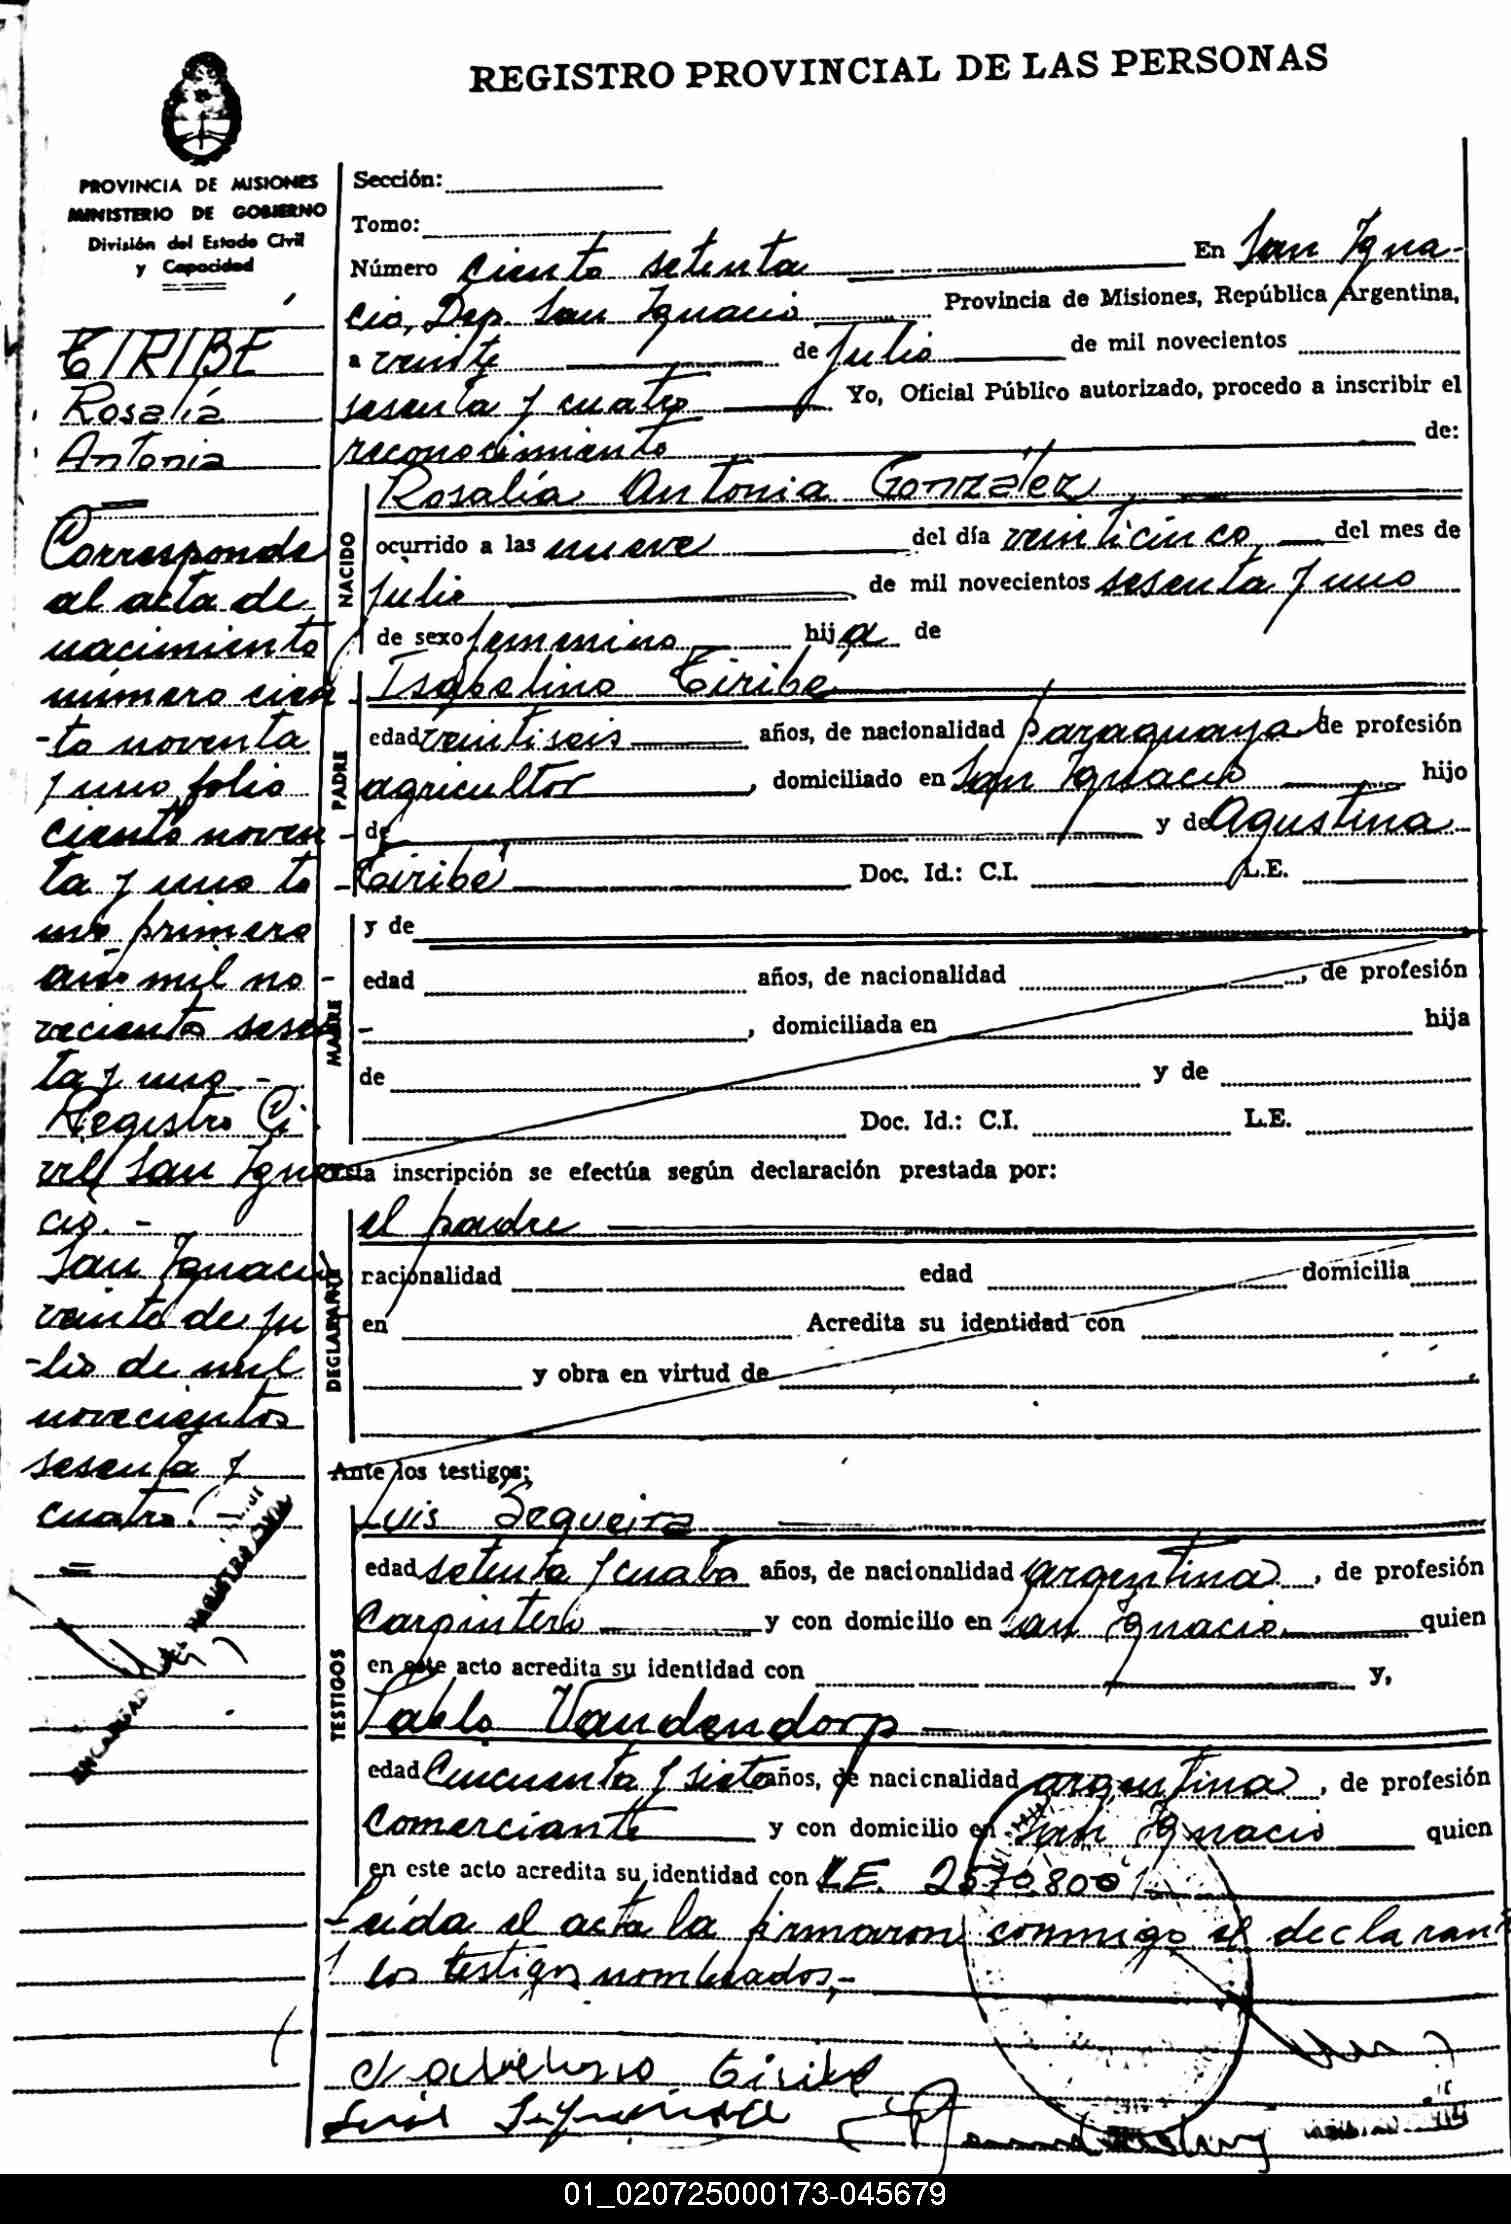 REGISTRO PROVINCIAL DE LAS PERSONAS
PROVINCIA DE MISIONES
MINISTERIO DE GOBIERNO
División del Estado Civil
y Capacidad
TIRIBE
Rosalía
Antonia
Corresponde
al acta de
nacimiento
número cien
-to noventa
y uno folio
ciento noven
ta y uno to
mo primero
año mil no
veciento sesen
ta y uno.-
Registro Ci
vil San Igna
cio.-
San Ignacio
veinte de ju
-lio de mil
novecientos
sesenta y
cuatro.-
Sección:
Tomo:
Número ciento setenta En San Igna-
cio, Dep. San Ignacio Provincia de Misiones, República Argentina,
a veinte de julio de mil novecientos
sesenta y cuatro Yo, Oficial Público autorizado, procedo a inscribir el
reconocimiento de:
NACIDO
Rosalía Antonia González
ocurrido a las nueve del día veinticinco del mes de
julio de mil novecientos sesenta y uno
de sexo femenino hija de
PADRE
Isabelino Tiribé
edad veintiseis años, de nacionalidad paraguaya de profesión
agricultor, domiciliado en San Ignacio hijo
de y de Agustina
Tiribé Doc. Id.: C.I. L.E.
MADRE
y de
edad años, de nacionalidad , de profesión
, domiciliada en hija
de y de
Doc. Id.: C.I. L.E.
Esta inscripción se efectúa según declaración prestada por:
DECLARANTE
el padre
nacionalidad edad domicilia
en Acredita su identidad con
y obra en virtud de
Ante los testigos:
TESTIGOS
Luis Sequeira
edad setenta y cuatro años, de nacionalidad argentina, de profesión
Carpintero y con domicilio en San Ignacio quien
en este acto acredita su identidad con y,
Pablo Vandendorp
edad Cincuenta y siete años, de nacionalidad argentina, de profesión
Comerciante y con domicilio en San Ignacio quien
en este acto acredita su identidad con L.E. 2570.800
Leída el acta la firmaron conmigo el declarante
y los testigos nombrados.-
Tiribe
Luis Sequeira
01_020725000173-045679